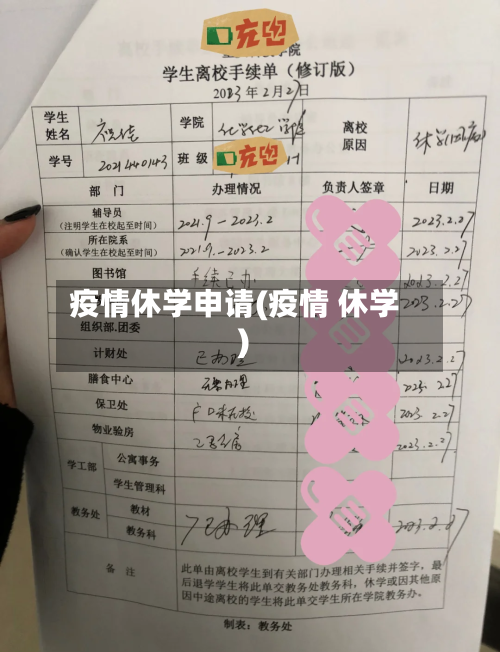 充电
学院
学生离校手续单（修订版）
2023年2月27日
学生姓名 学院 离校原因 休学(因病)
学号 2021440143 班 级 充电
部 门 办理情况 负责人签章 日期
辅导员 2021.9－2023.2 2023.2.27
（注明学生在校起至时间）
所在院系 2021.9.－2023.2 2023.2.27
（确认学生在校起至时间）
图书馆 手续已办 2023.2.27
疫情休学申请(疫情 休学
)
2023.2.27
组织部.团委
计财处 已办理 2023.2.27
膳食中心 2023.2.27
保卫处 户口未迁 2023.2.27
物业验房 2023.2.27
学工部 公寓事务
学生管理科
教务处 教材
教务科 已办理 2023.2.27
备 注 此单由离校学生到有关部门办理相关手续并签字，最
后退学学生将此单交教务处教务科，休学或因其他原
因中途离校的学生将此单交学生所在学院教务办。
制表：教务处